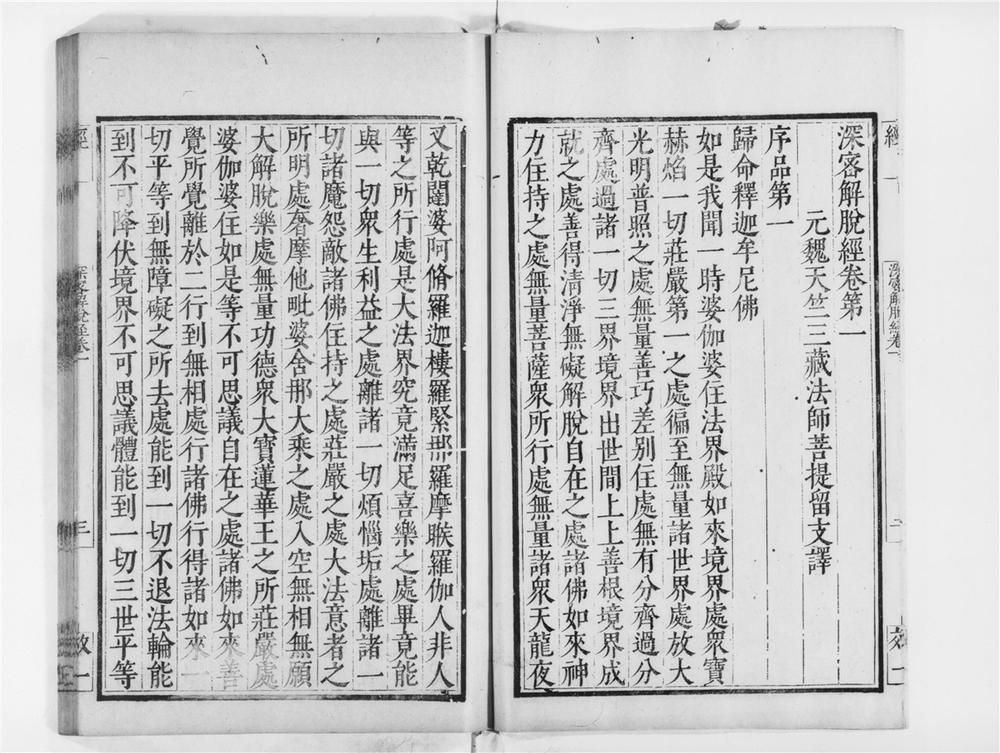 深密解脫經卷第一
元魏天竺三藏法師菩提留支譯
序品第一
歸命釋迦牟尼佛
如是我聞一時婆伽婆住法界殿如來境界處衆寶
赫焰一切莊嚴第一之處徧至無量諸世界處放大
光明普照之處無量善巧差别住處無有分齊過分
齊處過諸一切三界境界出世間上上善根境界成
就之處善得清淨無礙解脫自在之處諸佛如來神
力住持之處無量菩薩衆所行處無量諸衆天龍夜
叉乾闥婆阿脩羅迦樓羅緊那羅摩睺羅伽人非人
等之所行處是大法界究竟滿足喜樂之處畢竟能
與一切衆生利益之處離諸一切煩惱垢處離諸一
切諸魔怨敵諸佛住持之處莊嚴之處大法意者之
所明處奢摩他毗婆舍那大乘之處入空無相無願
大解脫樂處無量功德衆大寶蓮華王之所莊嚴處
婆伽婆住如是等不可思議自在之處諸佛如來善
覺所覺離於二行到無相處行諸佛行得諸如來一
切平等到無障礙之所去處能到一切不退法輪能
到不可降伏境界不可思議體能到一切三世平等
經
深密解脫經卷一
三
效一